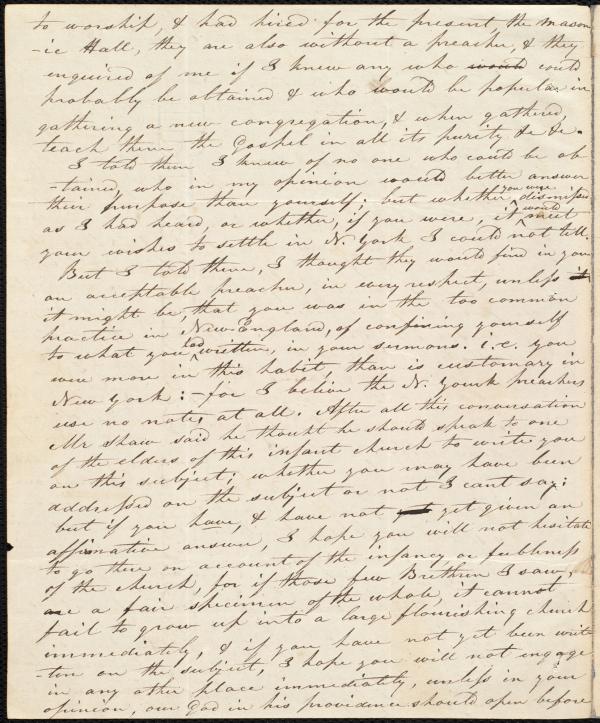 to worship, & had hired for the present, the Mason
-ic Hall, they are also without a preacher, & they
enquired of me if I knew any who would could
probably be obtained & who would be popular in
gathering a new congregation, & when gathered,
teach them the Gospel in all its purity &c &c.
I told them I knew of no one who could be ob
-tained, who in my opinion would better answer
their purpose than yourself; but whether you were dismissed
as I had heard, or whether, if you were, it would meet
your wishes to settle in N. York I could not tell.
But I told them, I thought they would find in you
an acceptable preacher, in every respect, unless it
it might be, that you was in the too common
practice in New-England, of confining yourself
to what you had written, in your sermons. i.e. you
were more in this habit, than is customary in
New York:- for I believe the N. York preachers
use no notes at all. After all this conversation
Mr Shaw said he thought he should speak to one
of the elders of this infant church to write you
on this subject; whether you may have been
addressed on the subject or not I cant say;
but if you have, & have not yet given an
affirmative answer, I hope you will not hesitate
to go there on account of the infancy or feebleness
of the church, for if those few Brethren I saw,
are a fair specimen of the whole, it cannot
fail to grow up into a large flourishing church
immediately, & if you have not yet been writ
-ten on the subject, I hope you will not engage
in any other place immediately, unless in your
opinion, our God in his providence should open before